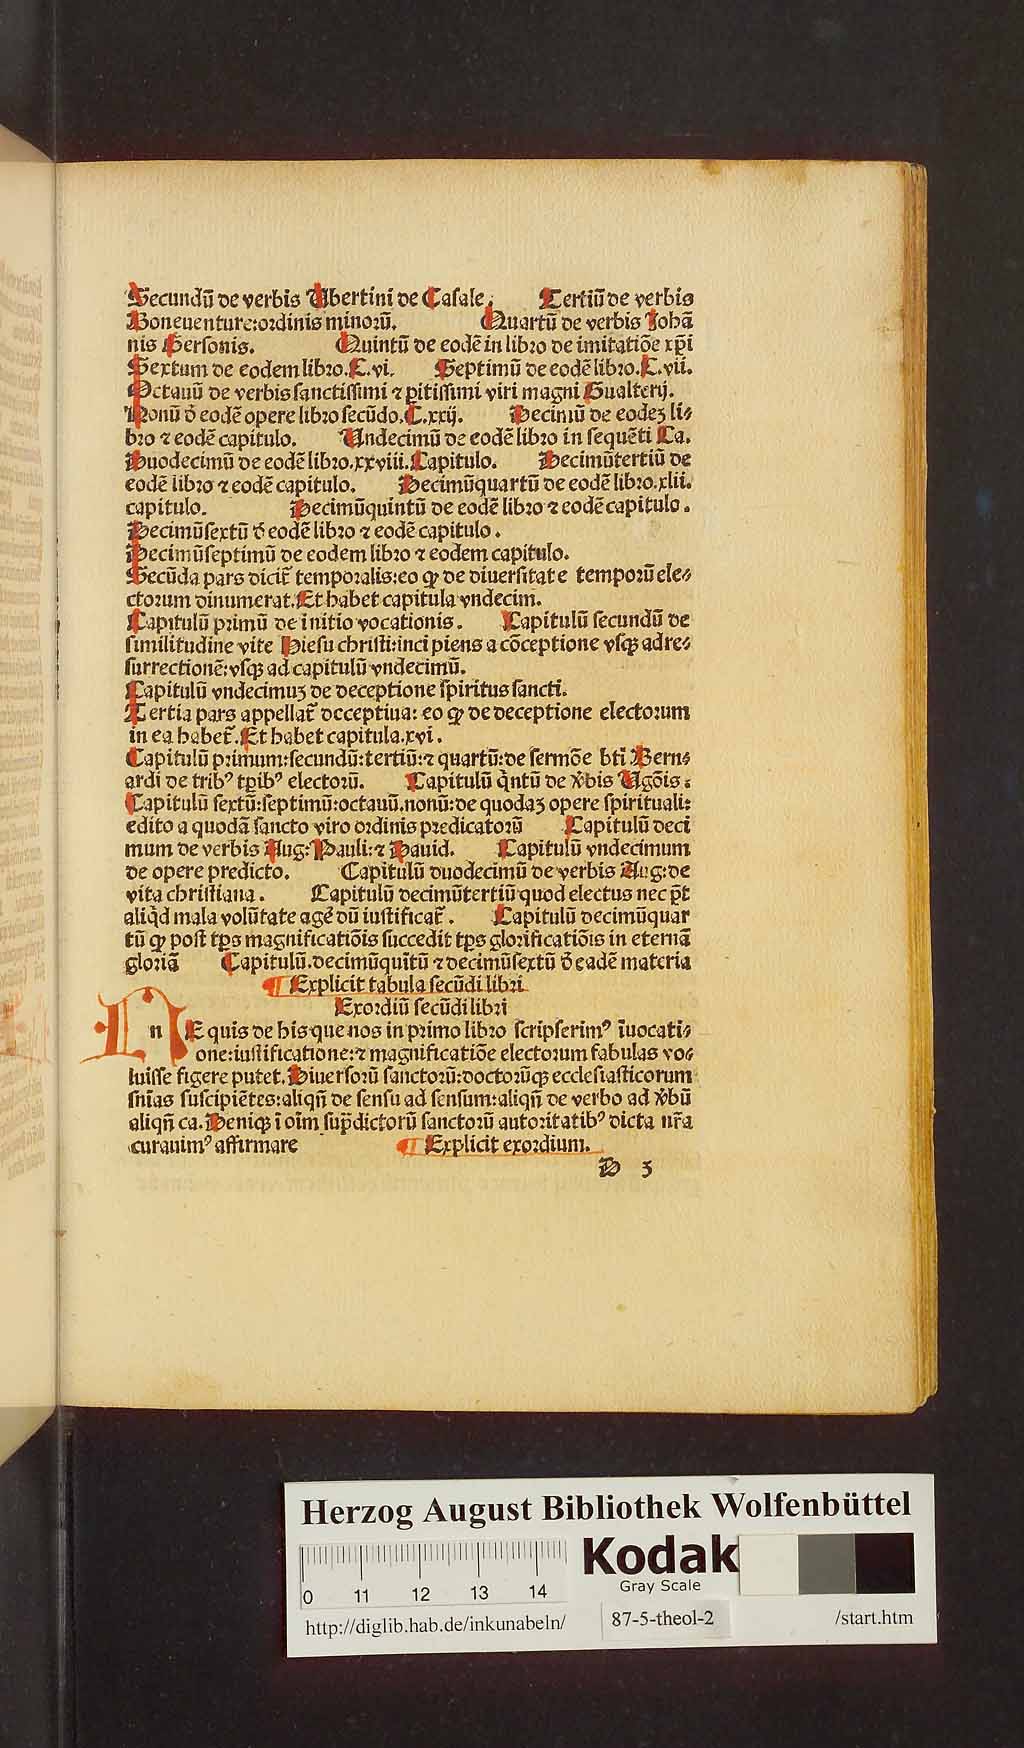 Secundū de verbis Ubertini de Casale. Tertiū de verbis
Boneuenture:ordinis minorū. Quartū de verbis Johā
nis Gersonis. Quintū de eodē in libro de imitatiōe xp̄i
Sextum de eodem libro.C.vi. Septimū de eodē libro.C.vii.
Octauū de verbis sanctissimi ⁊ pitissimi viri magni Gualterij.
Nonū ð eodē opere libro secūdo.C.xxij. Decimū de eodeȝ li⸗
bro ⁊ eodē capitulo. Undecimū de eodē libro in sequēti Ca.
Duodecimū de eodē libro.xxviii.Capitulo. Decimūtertiū de
eodē libro ⁊ eodē capitulo. Decimūquartū de eodē libro.xlii.
capitulo. Decimūquintū de eodē libro ⁊ eodē capitulo.
Decimūsextū ð eodē libro ⁊ eodē capitulo.
Decimūseptimū de eodem libro ⁊ eodem capitulo.
Secūda pars dicit̄ temporalis:eo ꝙ de diuersitate temporū ele⸗
ctorum dinumerat.Et habet capitula vndecim.
Capitulū primū de initio vocationis. Capitulū secundū de
similitudine vite Hiesu christi:incipiens a cōceptione vsqꝫ ad re⸗
surrectionē:vsqꝫ ad capitulū vndecimū.
Capitulū vndecimuȝ de deceptione spiritus sancti.
Tertia pars appellat̄ deceptiua: eo ꝙ de deceptione electorum
in ea habet̄.Et habet capitula.xvi.
Capitulū primum:secundū:tertiū:⁊ quartū:de sermōe bt̄i Bern⸗
ardi de tribꝰ tp̄ibꝰ electorū. Capitulū q̄ntū de v̄bis Ugōis:
Capitulū sextū:septimū:octauū.nonū:de quodaȝ opere spirituali:
edito a quodā sancto viro ordinis predicatorū Capitulū deci
mum de verbis Aug:Pauli:⁊ Dauid. Capitulū vndecimum
de opere predicto. Capitulū duodecimū de verbis Aug:de
vita christiana. Capitulū decimūtertiū quod electus nec p̄t
aliq̄d mala volūtate agē dū iustificat̄. Capitulū decimūquar
tū ꝙ post tp̄s magnificatiōis succedit tp̄s glorificatiōis in eternā
gloriā Capitulū.decimūquītū ⁊ decimūsextū ð eadē materia
¶ Explicit tabula secūdi libri
Exordiū secūdi libri
n E quis de his que nos in primo libro scripserimꝰ ī uocati⸗
one:iustificatione:⁊ magnificatiōe electorum fabulas vo⸗
luisse figere putet.Diuersorū sanctorū:doctorūqꝫ ecclesiasticorum
sn̄ias suscipiētes:aliqn̄ de sensu ad sensum:aliqn̄ de verbo ad v̄bū
aliqn̄ ca.Deniqꝫ ī oīm sup̄dictorū sanctorū autoritatibꝰ dicta nr̄a
curauimꝰ affirmare ¶ Explicit exordium.
D 3
Herzog August Bibliothek Wolfenbüttel
Kodak
Gray Scale
0 11 12 13 14
http://diglib.hab.de/inkunabeln/ 87-5-theol-2 /start.htm